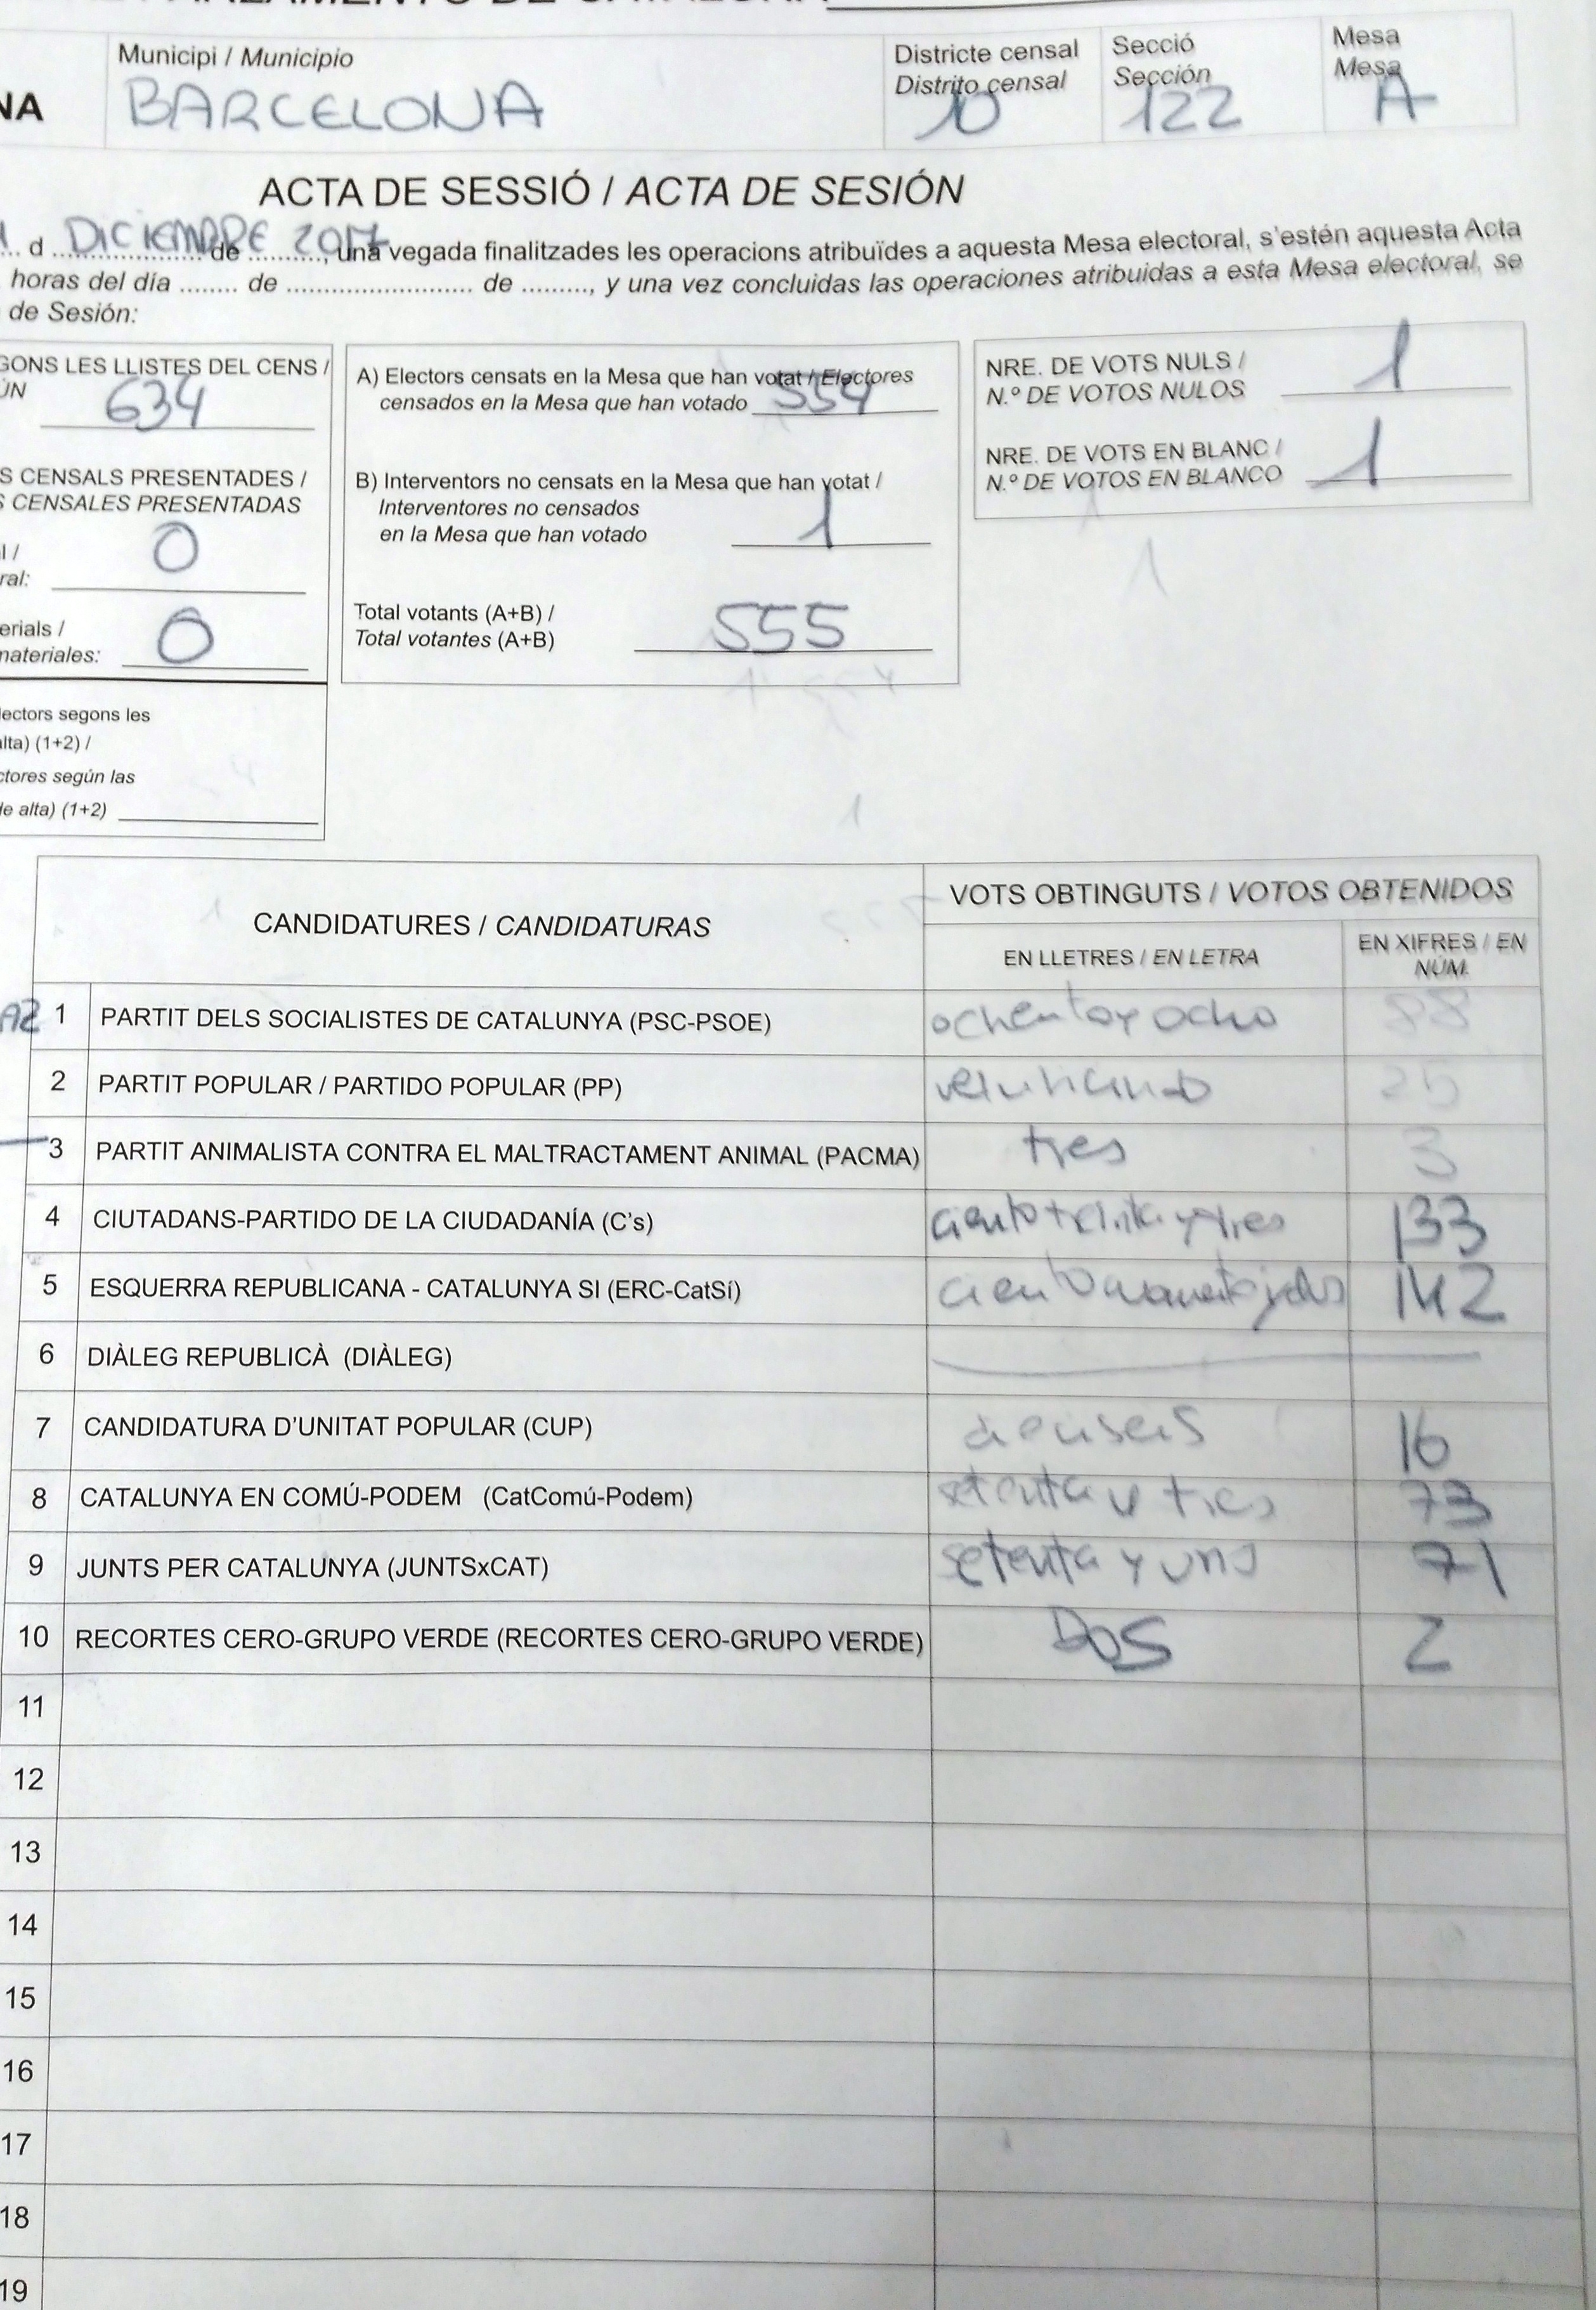 PARLAMENTO DE CATALUÑA
Municipi / Municipio
BARCELONA
Districte censal
Distrito censal
10
Secció
Sección
122
Mesa
Mesa
A
NA
ACTA DE SESSIÓ / ACTA DE SESIÓN
d DICIEMBRE de 2017, una vegada finalitzades les operacions atribuïdes a aquesta Mesa electoral, s'estén aquesta Acta
horas del día ........ de .......................... de ........., y una vez concluidas las operaciones atribuidas a esta Mesa electoral, se
de Sesión:
GONS LES LLISTES DEL CENS /
ÚN
634
S CENSALS PRESENTADES /
S CENSALES PRESENTADAS
l /
ral: 0
erials /
materiales: 0
lectors segons les
alta) (1+2) /
ctores según las
de alta) (1+2)
A) Electors censats en la Mesa que han votat / Electores
censados en la Mesa que han votado 554
B) Interventors no censats en la Mesa que han votat /
Interventores no censados
en la Mesa que han votado 1
Total votants (A+B) /
Total votantes (A+B) 555
NRE. DE VOTS NULS /
N.º DE VOTOS NULOS 1
NRE. DE VOTS EN BLANC /
N.º DE VOTOS EN BLANCO 1
CANDIDATURES / CANDIDATURAS
VOTS OBTINGUTS / VOTOS OBTENIDOS
EN LLETRES / EN LETRA
EN XIFRES / EN
NÚM.
1 PARTIT DELS SOCIALISTES DE CATALUNYA (PSC-PSOE) ochenta y ocho 88
2 PARTIT POPULAR / PARTIDO POPULAR (PP) 25
3 PARTIT ANIMALISTA CONTRA EL MALTRACTAMENT ANIMAL (PACMA) tres 3
4 CIUTADANS-PARTIDO DE LA CIUDADANÍA (C's) ciento treinta y tres 133
5 ESQUERRA REPUBLICANA - CATALUNYA SI (ERC-CatSí) ciento cuarenta y dos 142
6 DIÀLEG REPUBLICÀ (DIÀLEG)
7 CANDIDATURA D'UNITAT POPULAR (CUP) 16
8 CATALUNYA EN COMÚ-PODEM (CatComú-Podem) setenta y tres 73
9 JUNTS PER CATALUNYA (JUNTSxCAT) setenta y uno 71
10 RECORTES CERO-GRUPO VERDE (RECORTES CERO-GRUPO VERDE) DOS 2
11
12
13
14
15
16
17
18
19